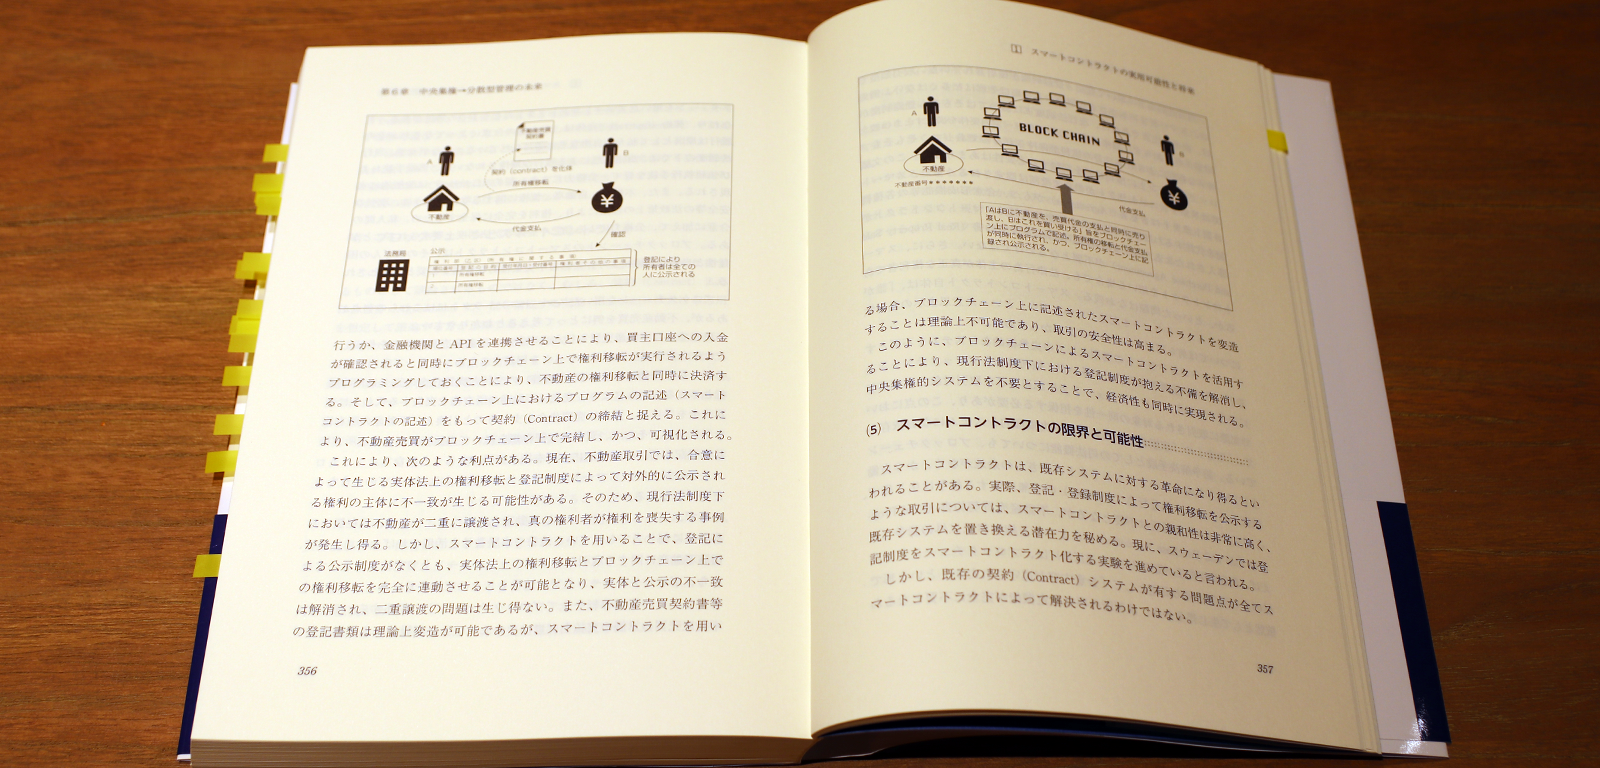 第6章 中央集権→分散型管理の未来
不動産売買
契約書
A
B
契約（contract）を化体
所有権移転
不動産
代金支払
確認
法務局
公示
権利部（甲区）（所有権に関する事項）
順位番号 登記の目的 受付年月日・受付番号 権利者その他の事項
所有権移転
2 所有権移転
登記により
所有者は全ての
人に公示される
行うか、金融機関と API を連携させることにより、買主口座への入金
が確認されると同時にブロックチェーン上で権利移転が実行されるよう
プログラミングしておくことにより、不動産の権利移転と同時に決済す
る。そして、ブロックチェーン上におけるプログラムの記述（スマート
コントラクトの記述）をもって契約（Contract）の締結と捉える。これに
より、不動産売買がブロックチェーン上で完結し、かつ、可視化される。
これにより、次のような利点がある。現在、不動産取引では、合意に
よって生じる実体法上の権利移転と登記制度によって対外的に公示され
る権利の主体に不一致が生じる可能性がある。そのため、現行法制度下
においては不動産が二重に譲渡され、真の権利者が権利を喪失する事例
が発生し得る。しかし、スマートコントラクトを用いることで、登記に
よる公示制度がなくとも、実体法上の権利移転とブロックチェーン上で
の権利移転を完全に連動させることが可能となり、実体と公示の不一致
は解消され、二重譲渡の問題は生じ得ない。また、不動産売買契約書等
の登記書類は理論上変造が可能であるが、スマートコントラクトを用い
356
1 スマートコントラクトの実用可能性と将来
A
BLOCK CHAIN
B
不動産
不動産番号＊＊＊＊＊＊＊
代金支払
「AはBに不動産を、売買代金の支払と同時に売り
渡し、Bはこれを買い受ける」旨をブロックチェー
ン上にプログラムで記述。所有権の移転と代金支払
が同時に執行され、かつ、ブロックチェーン上に記
録され公示される。
る場合、ブロックチェーン上に記述されたスマートコントラクトを変造
することは理論上不可能であり、取引の安全性は高まる。
このように、ブロックチェーンによるスマートコントラクトを活用す
ることにより、現行法制度下における登記制度が抱える不備を解消し、
中央集権的システムを不要とすることで、経済性も同時に実現される。
(5) スマートコントラクトの限界と可能性
スマートコントラクトは、既存システムに対する革命になり得るとい
われることがある。実際、登記・登録制度によって権利移転を公示する
ような取引については、スマートコントラクトとの親和性は非常に高く、
既存システムを置き換える潜在力を秘める。現に、スウェーデンでは登
記制度をスマートコントラクト化する実験を進めていると言われる。
しかし、既存の契約（Contract）システムが有する問題点が全てス
マートコントラクトによって解決されるわけではない。
357